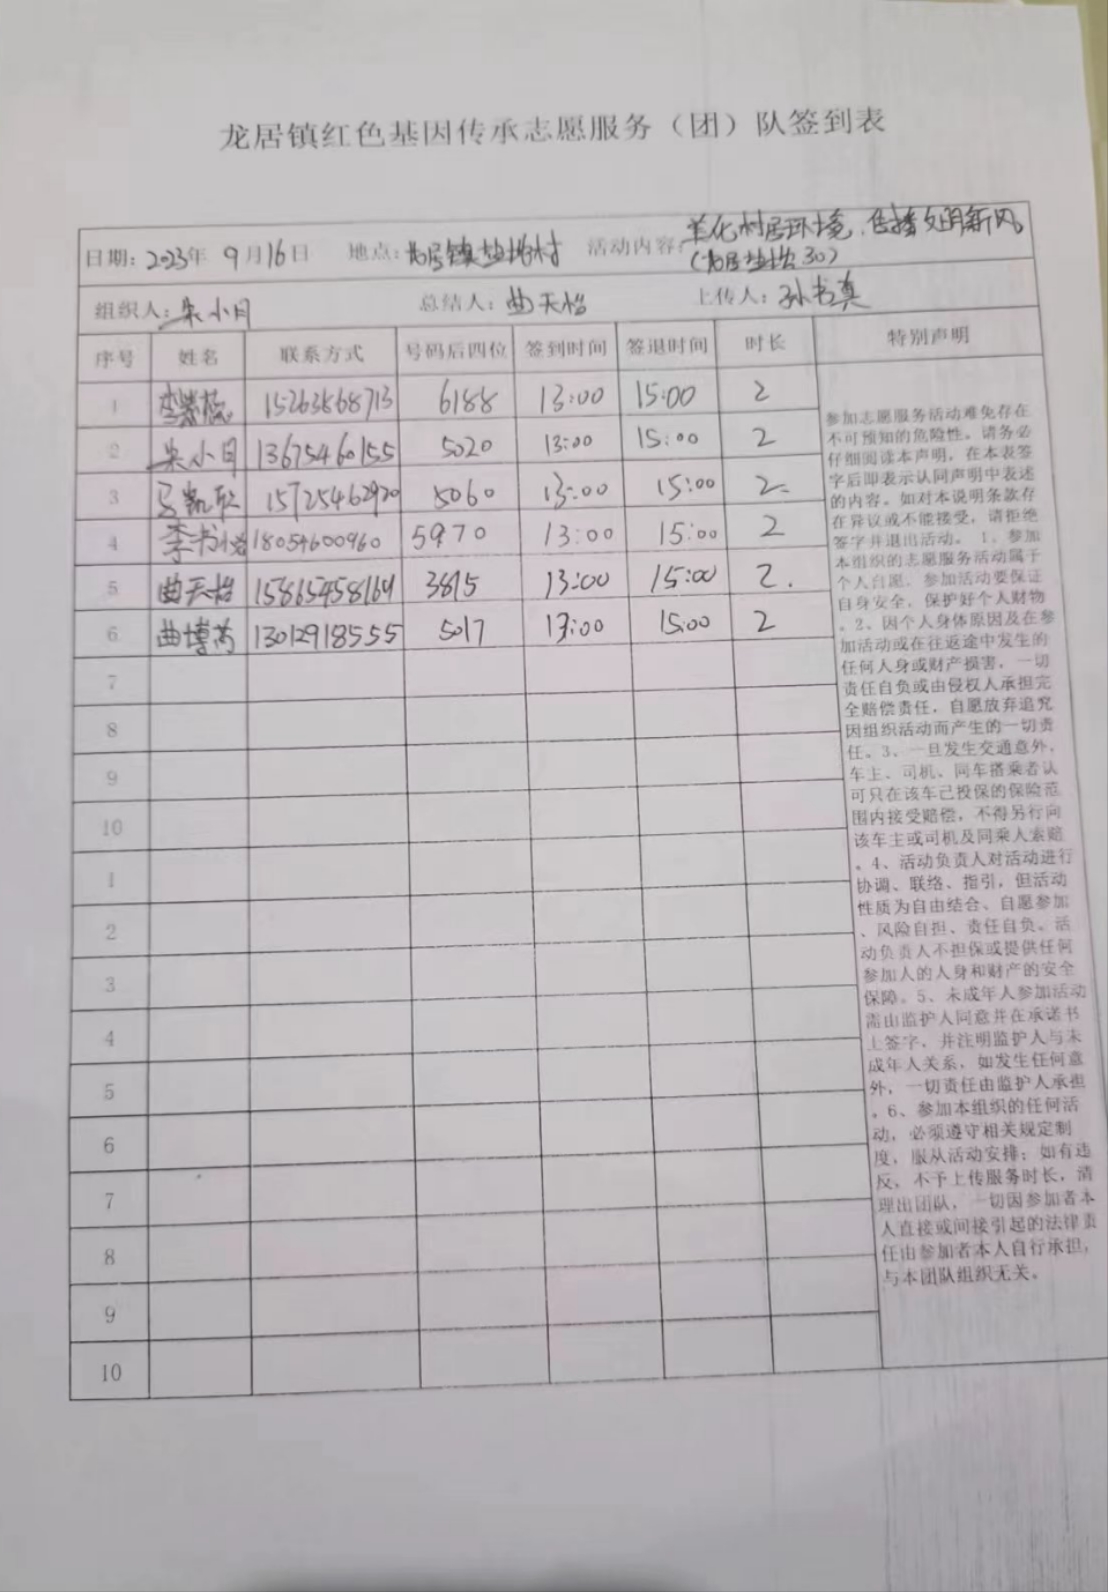 龙居镇红色基因传承志愿服务（团）队签到表
日期：2023年 9月16日 地点：龙居镇盐坨村 活动内容：美化村居环境，传播文明新风
（龙居盐坨30）
组织人：朱小月 总结人：曲天怡 上传人：孙书真
序号 姓名 联系方式 号码后四位 签到时间 签退时间 时长 特别声明
1 15263868713 6188 13:00 15:00 2
2 朱小月 13675460155 5020 13:00 15:00 2
3 马凯 15725462920 5060 13:00 15:00 2
4 李 18054600960 5970 13:00 15:00 2
5 曲天怡 15865458164 3815 13:00 15:00 2
6 曲博芮 13012918555 5017 13:00 15:00 2
7
8
9
10
1
2
3
4
5
6
7
8
9
10
参加志愿服务活动难免存在
不可预知的危险性。请务必
仔细阅读本声明，在本表签
字后即表示认同声明中表述
的内容。如对本说明条款存
在异议或不能接受，请拒绝
签字并退出活动。1、参加
本组织的志愿服务活动属于
个人自愿，参加活动要保证
自身安全，保护好个人财物
。2、因个人身体原因及在参
加活动或在往返途中发生的
任何人身或财产损害，一切
责任自负或由侵权人承担完
全赔偿责任，自愿放弃追究
因组织活动而产生的一切责
任。3、一旦发生交通意外，
车主、司机、同车搭乘者认
可只在该车已投保的保险范
围内接受赔偿，不得另行向
该车主或司机及同乘人索赔
。4、活动负责人对活动进行
协调、联络、指引，但活动
性质为自由结合、自愿参加
、风险自担、责任自负。活
动负责人不担保或提供任何
参加人的人身和财产的安全
保障。5、未成年人参加活动
需由监护人同意并在承诺书
上签字，并注明监护人与未
成年人关系，如发生任何意
外，一切责任由监护人承担
。6、参加本组织的任何活
动，必须遵守相关规定制
度，服从活动安排；如有违
反，不予上传服务时长，清
理出团队，一切因参加者本
人直接或间接引起的法律责
任由参加者本人自行承担，
与本团队组织无关。